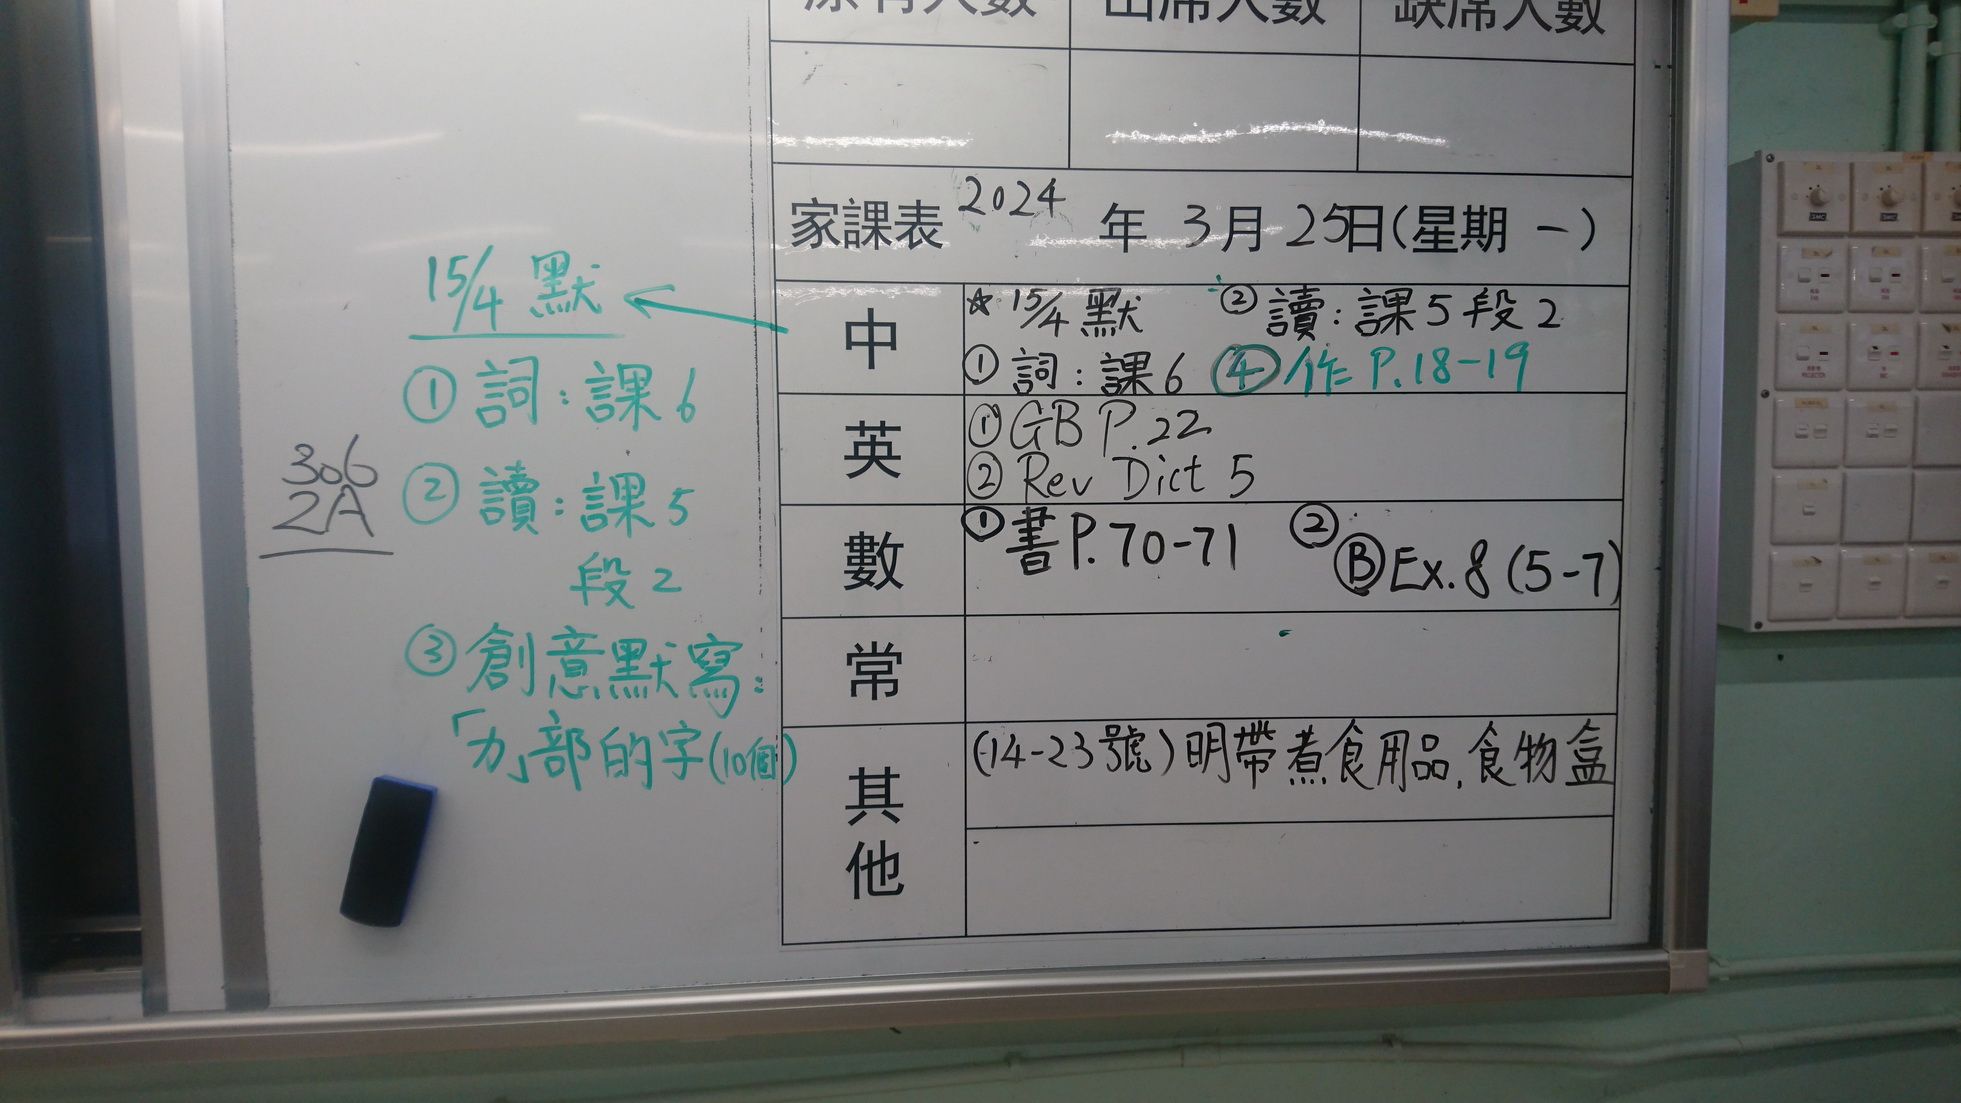 原有人數 出席人數 缺席人數
家課表 2024 年 3月 25日(星期 一)
中
☆ 15/4 默 ② 讀:課5 段2
① 詞:課6 ④ 作 P.18-19
英
① GB P.22
② Rev Dict 5
數
① 書 P.70-71 ② Ⓑ Ex.8 (5-7)
常
其他
(14-23號)明帶煮食用品,食物盒
15/4 默
① 詞:課6
② 讀:課5
段2
③ 創意默寫:
「力」部的字(10個)
306
2A